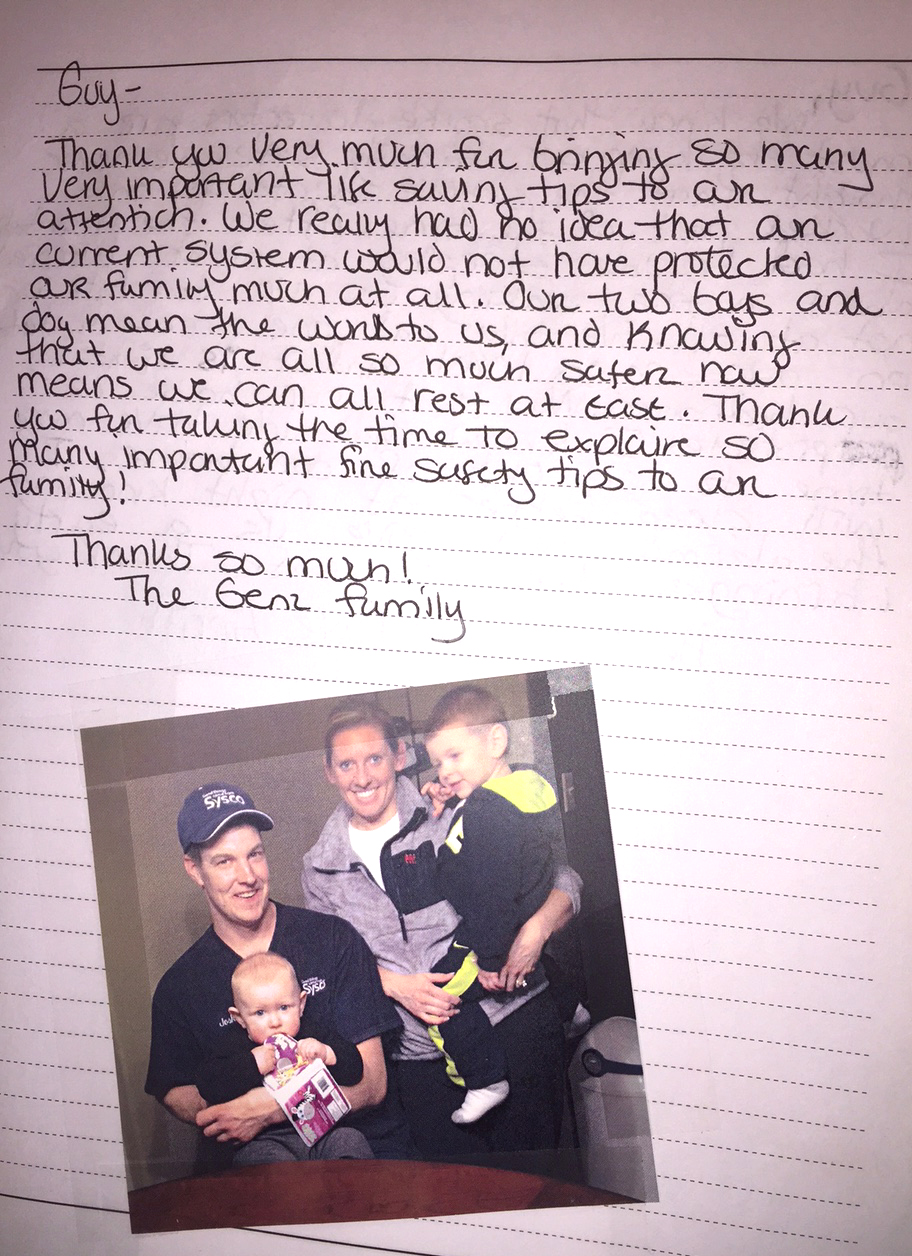 Guy-
Thank you very much for bringing so many
very important life saving tips to our
attention. We really had no idea that our
current system would not have protected
our family much at all. Our two boys and
dog mean the world to us, and knowing
that we are all so much safer now
means we can all rest at ease. Thank
you for taking the time to explaine so
many important fire safety tips to our
family!
Thanks so much!
The Genz family
Sysco
Sysco
Josh